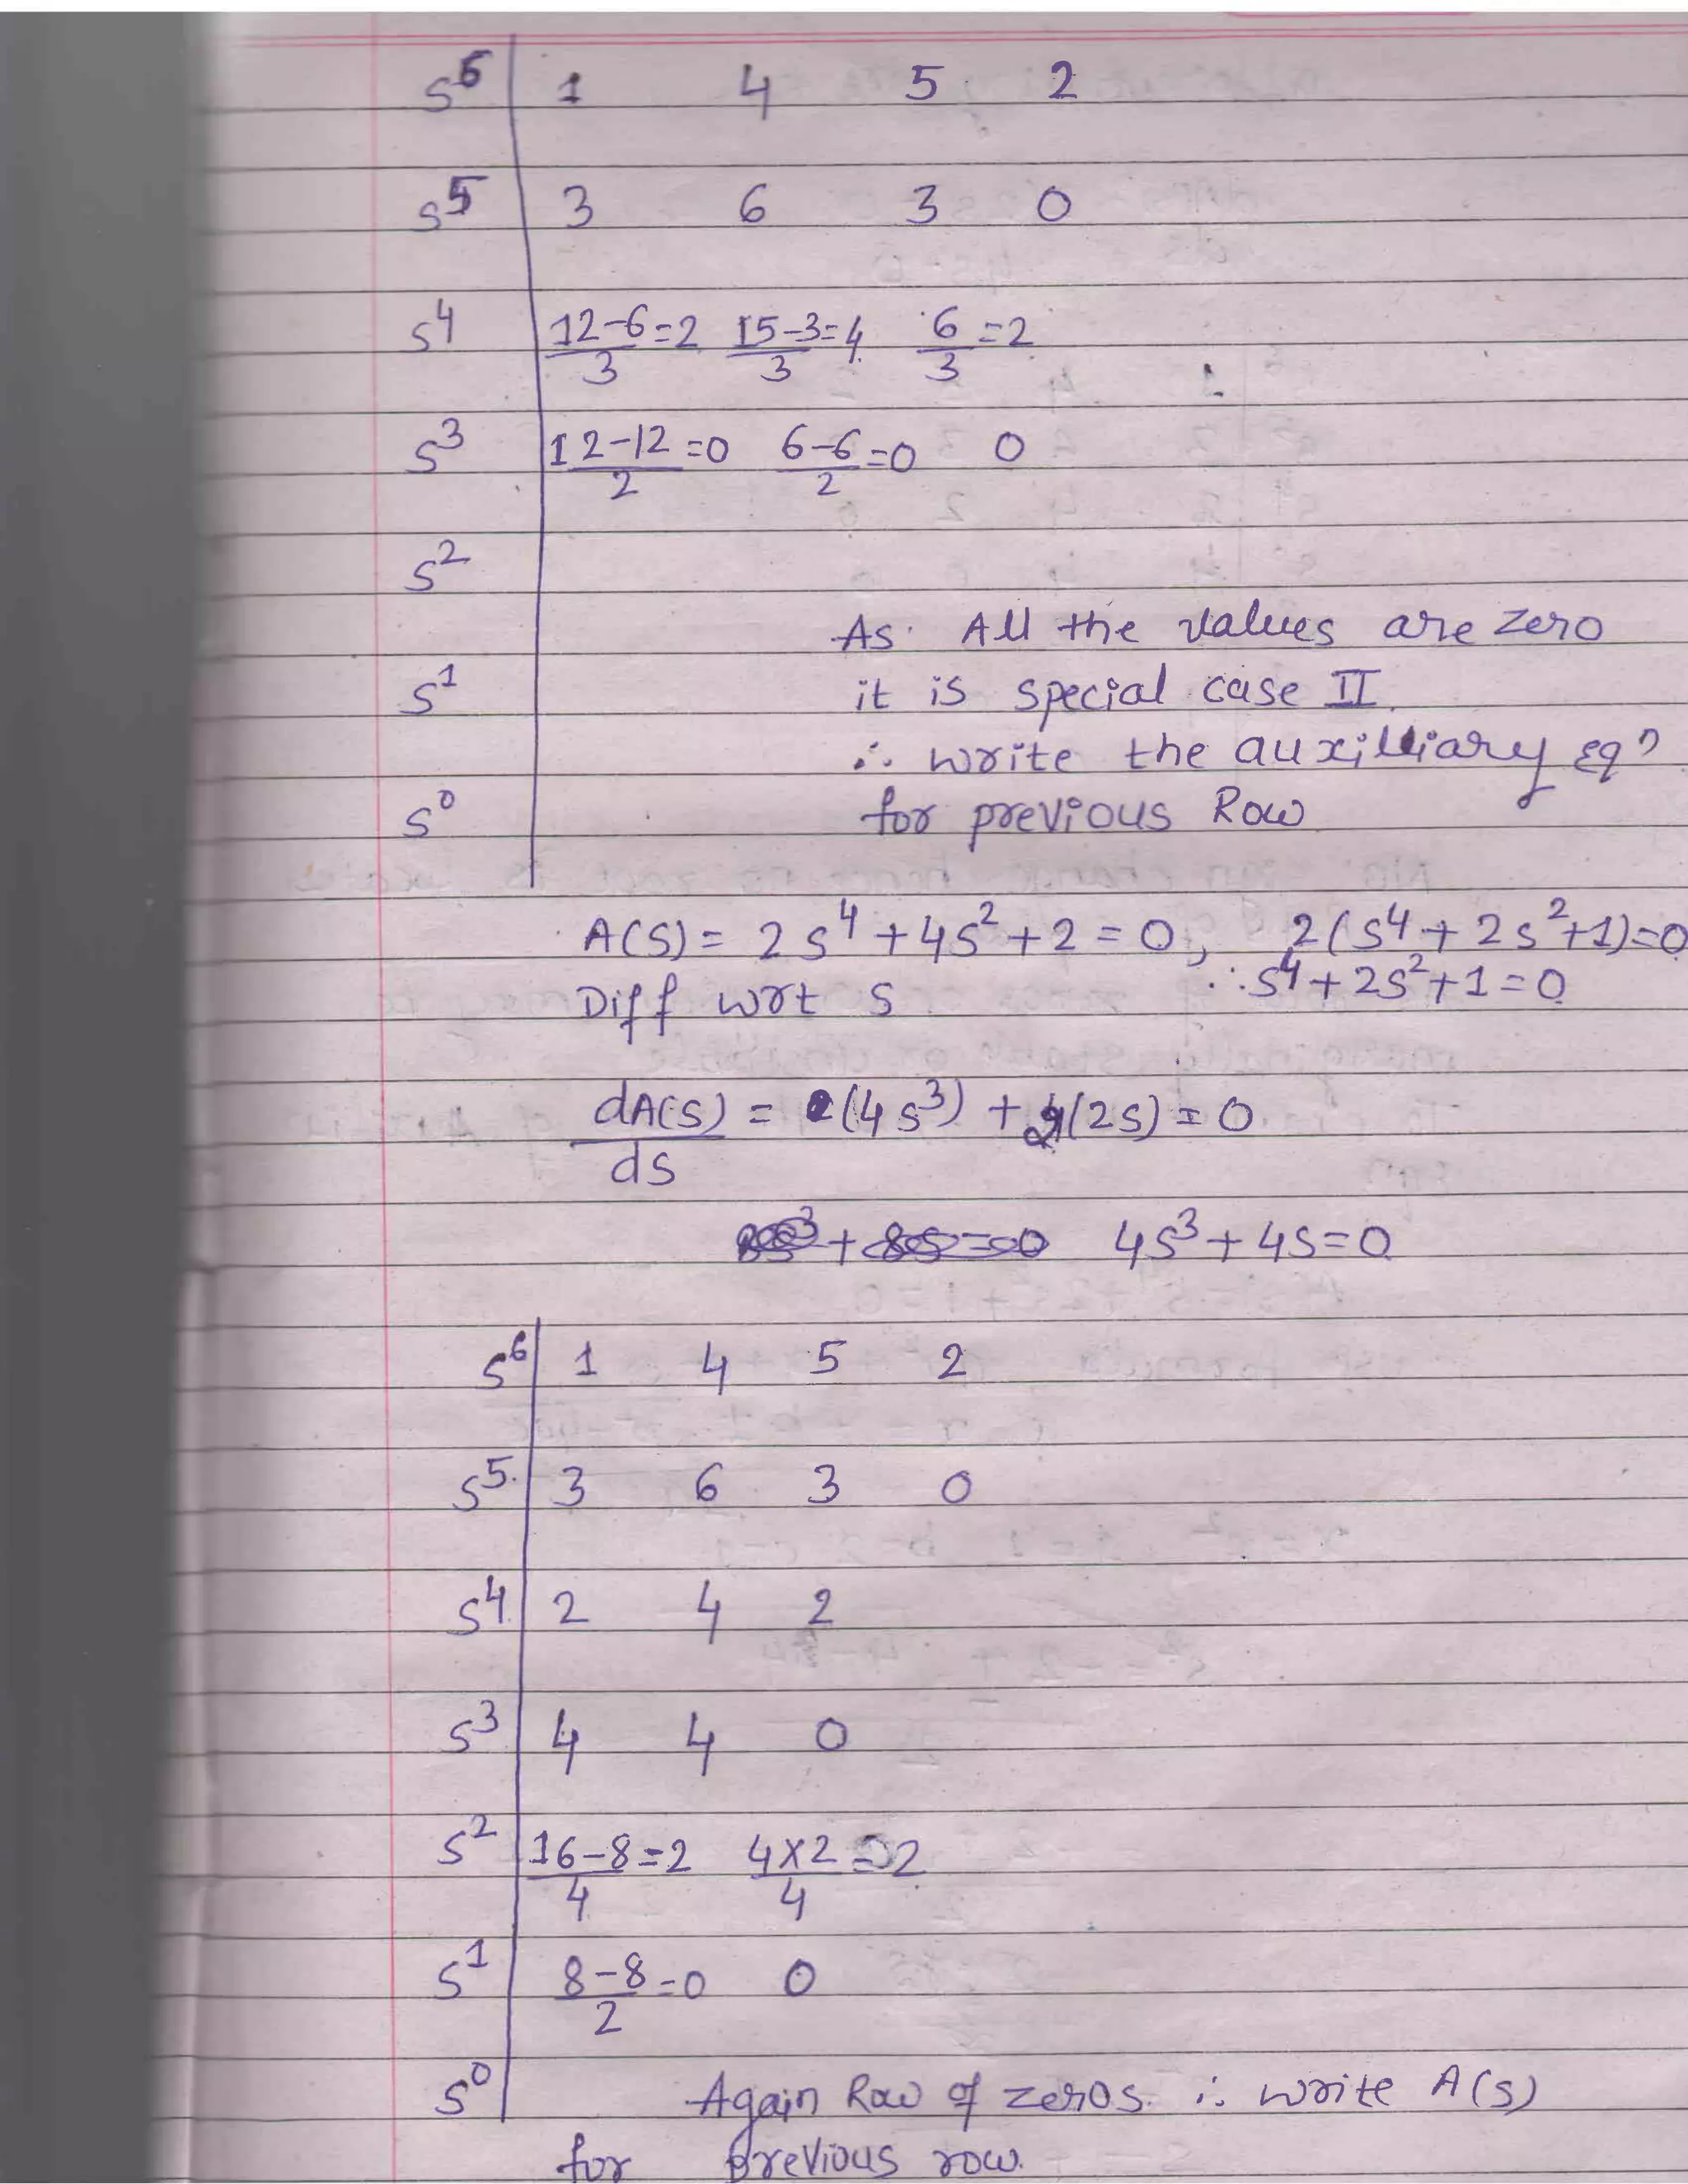 s⁶ 1 4 5 2
s⁵ 3 6 3 0
s⁴ 12-6/3=2 15-3/3=4 6/3=2
s³ 12-12/2=0 6-6/2=0 0
s²
As All the values are zero
s¹ it is special case II.
∴ write the auxilliary Eqⁿ
s⁰ for previous Row
A(s) = 2s⁴+4s²+2=0, 2(s⁴+2s²+1)=0
Diff wrt s ∴s⁴+2s²+1=0
dA(s)/ds = (4s³) + (2s)=0
4s³+4s=0
s⁶ 1 4 5 2
s⁵ 3 6 3 0
s⁴ 2 4 2
s³ 4 4 0
s² 16-8/4=2 4x2/4=2
s¹ 8-8/2=0 0
s⁰ Again Row of zeros ∴ write A(s)
for previous row.